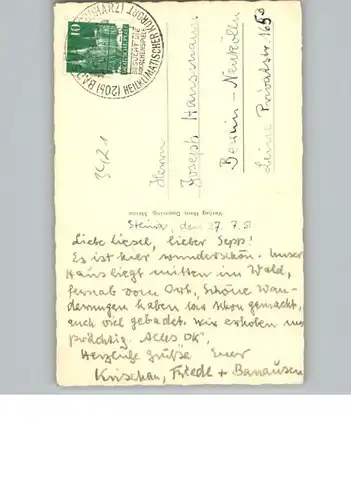 10
(20b) BAD
HEILKLIMATISCHER KURORT
BESUCHT DIE
3421
Herrn
Joseph Hausmann
Berlin-Neukölln
Leine Privatstr. 165
Verlag Hans
Steina, den 27. 7. 51
Liebe Liesel, lieber Sepp!
Es ist hier wunderschön. Unser
Haus liegt mitten im Wald,
fernab vom Ort. Schöne Wan-
derungen haben wir schon gemacht,
auch viel gebadet. Wir erholen uns
prächtig. "Alles OK",
Herzliche Grüße Euer
Krischan, Friedl + Banausen